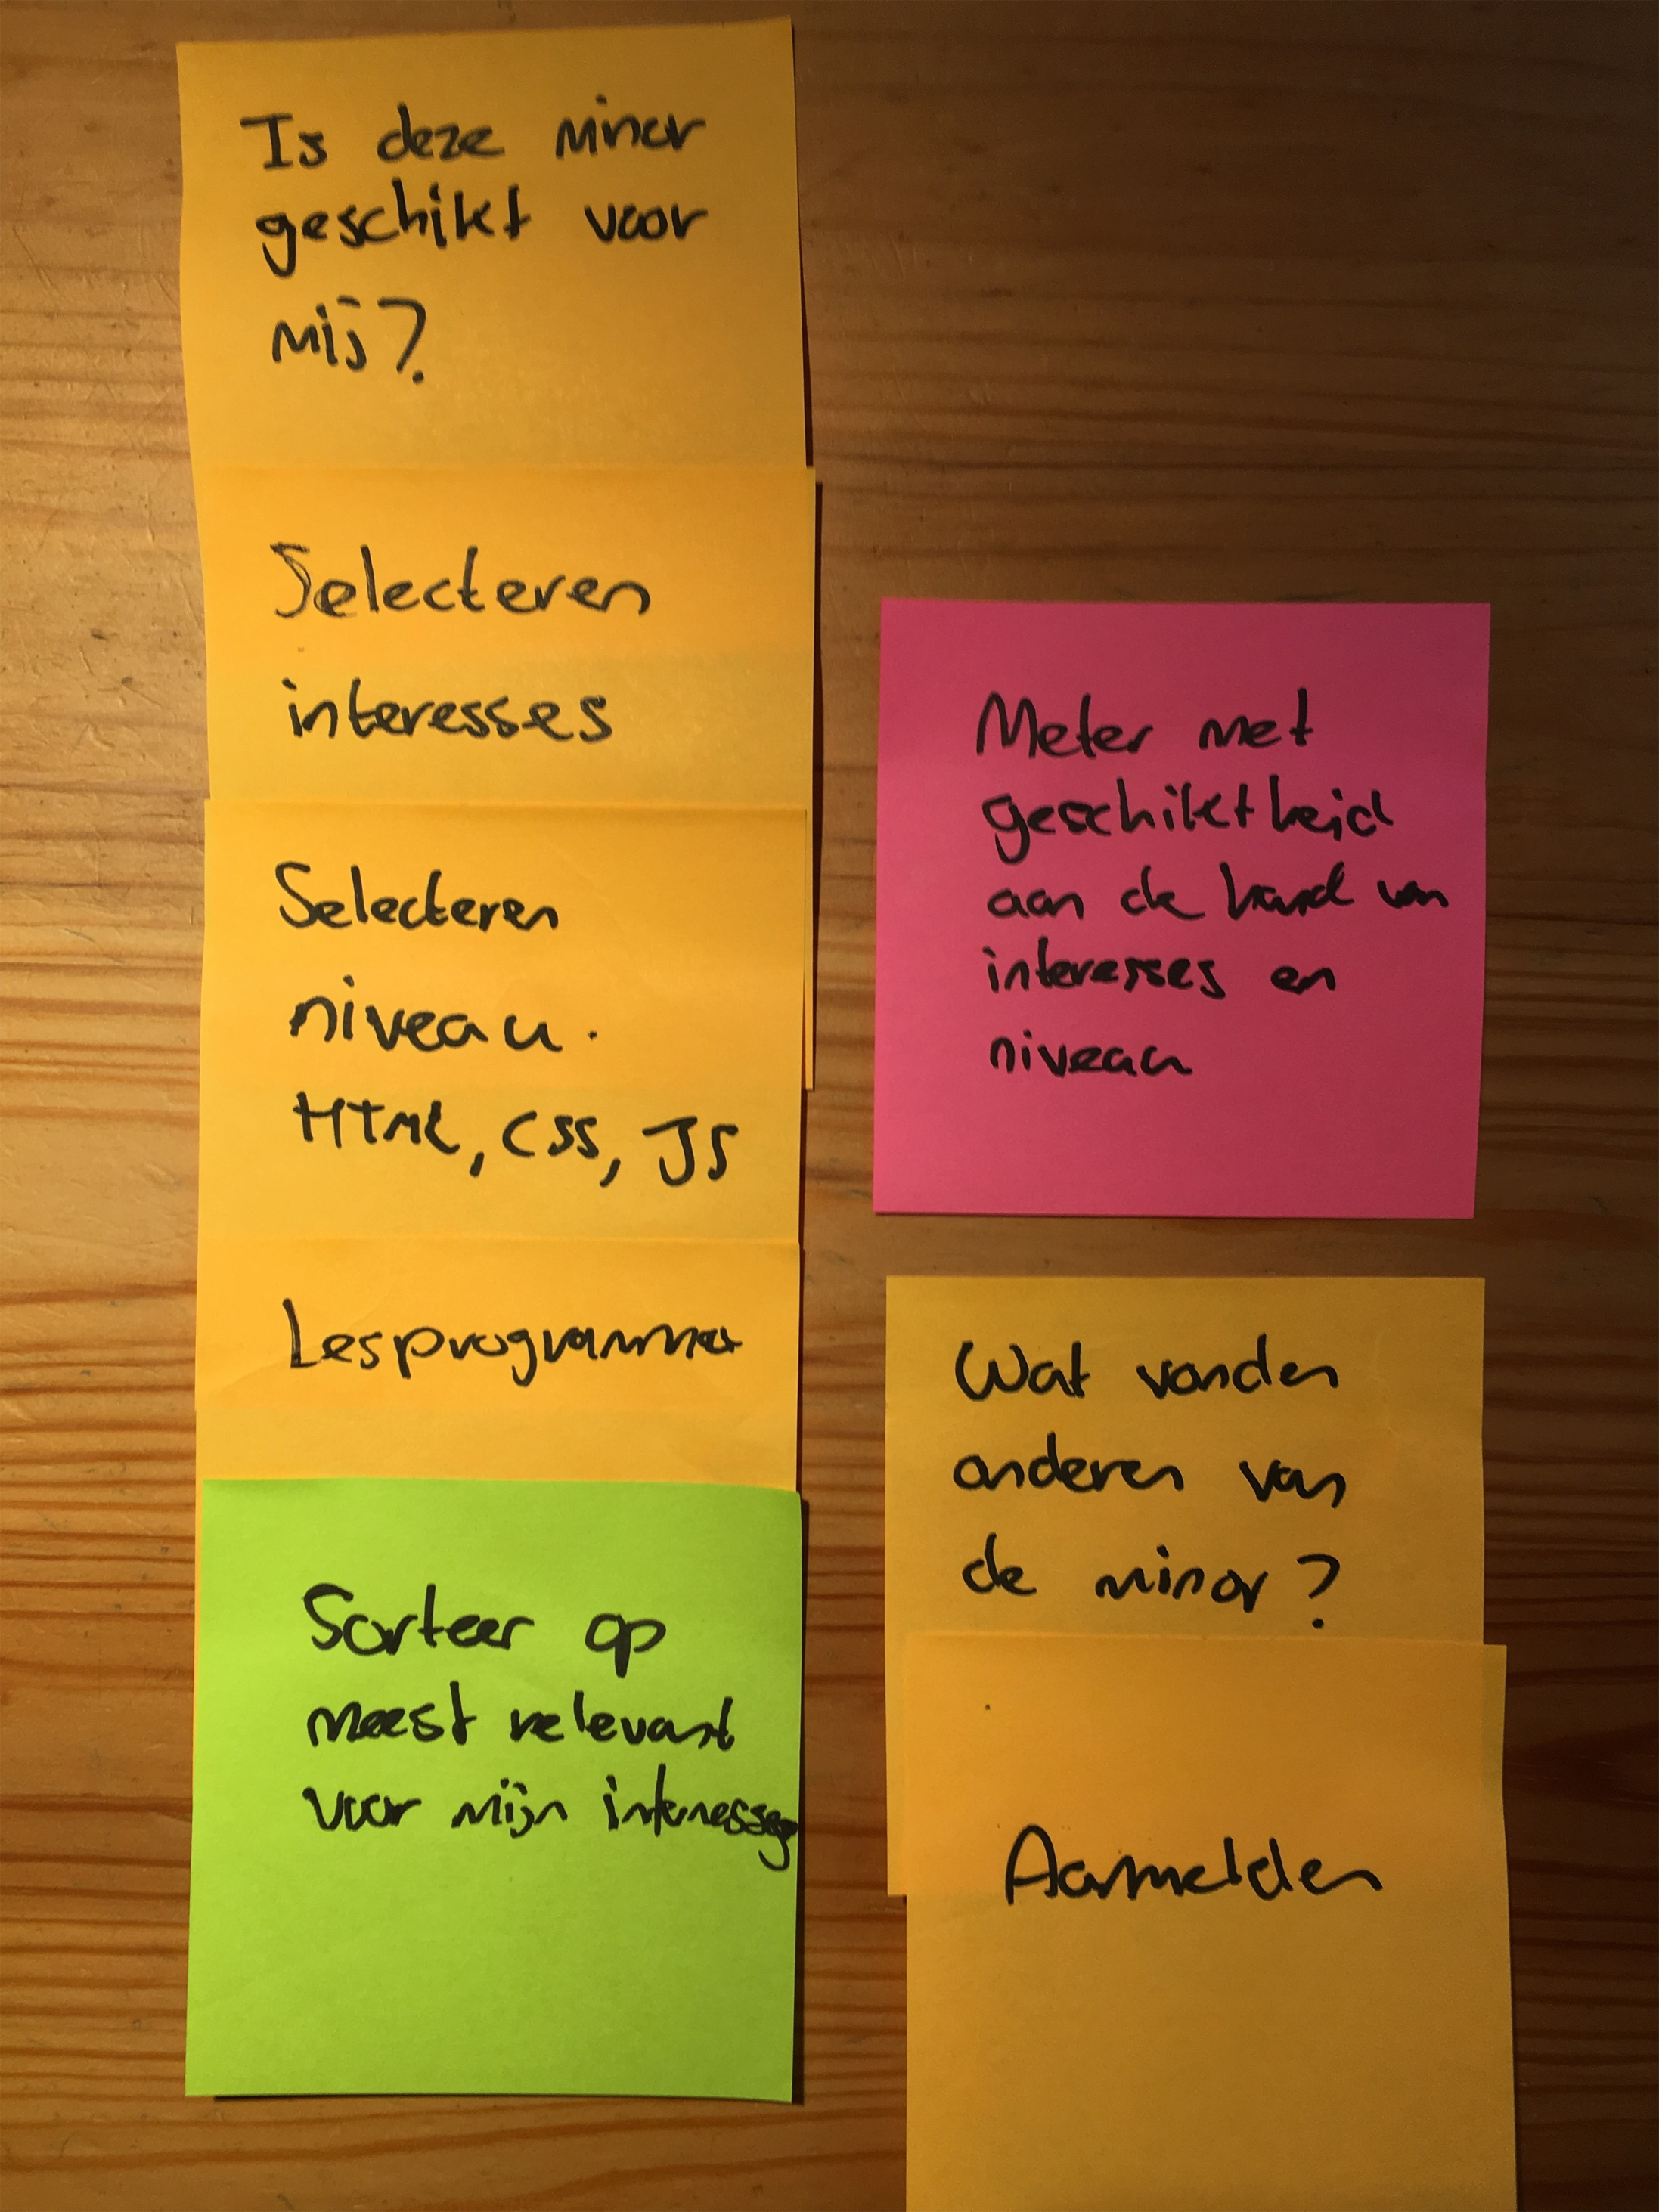 Is deze minor
geschikt voor
mij?
Selecteren
interesses
Selecteren
niveau.
HTML, CSS, JS
Lesprogramma
Sorteer op
meest relevant
voor mijn interesses
Meter met
geschiktheid
aan de hand van
interesses en
niveau
Wat vonden
anderen van
de minor?
Aanmelden